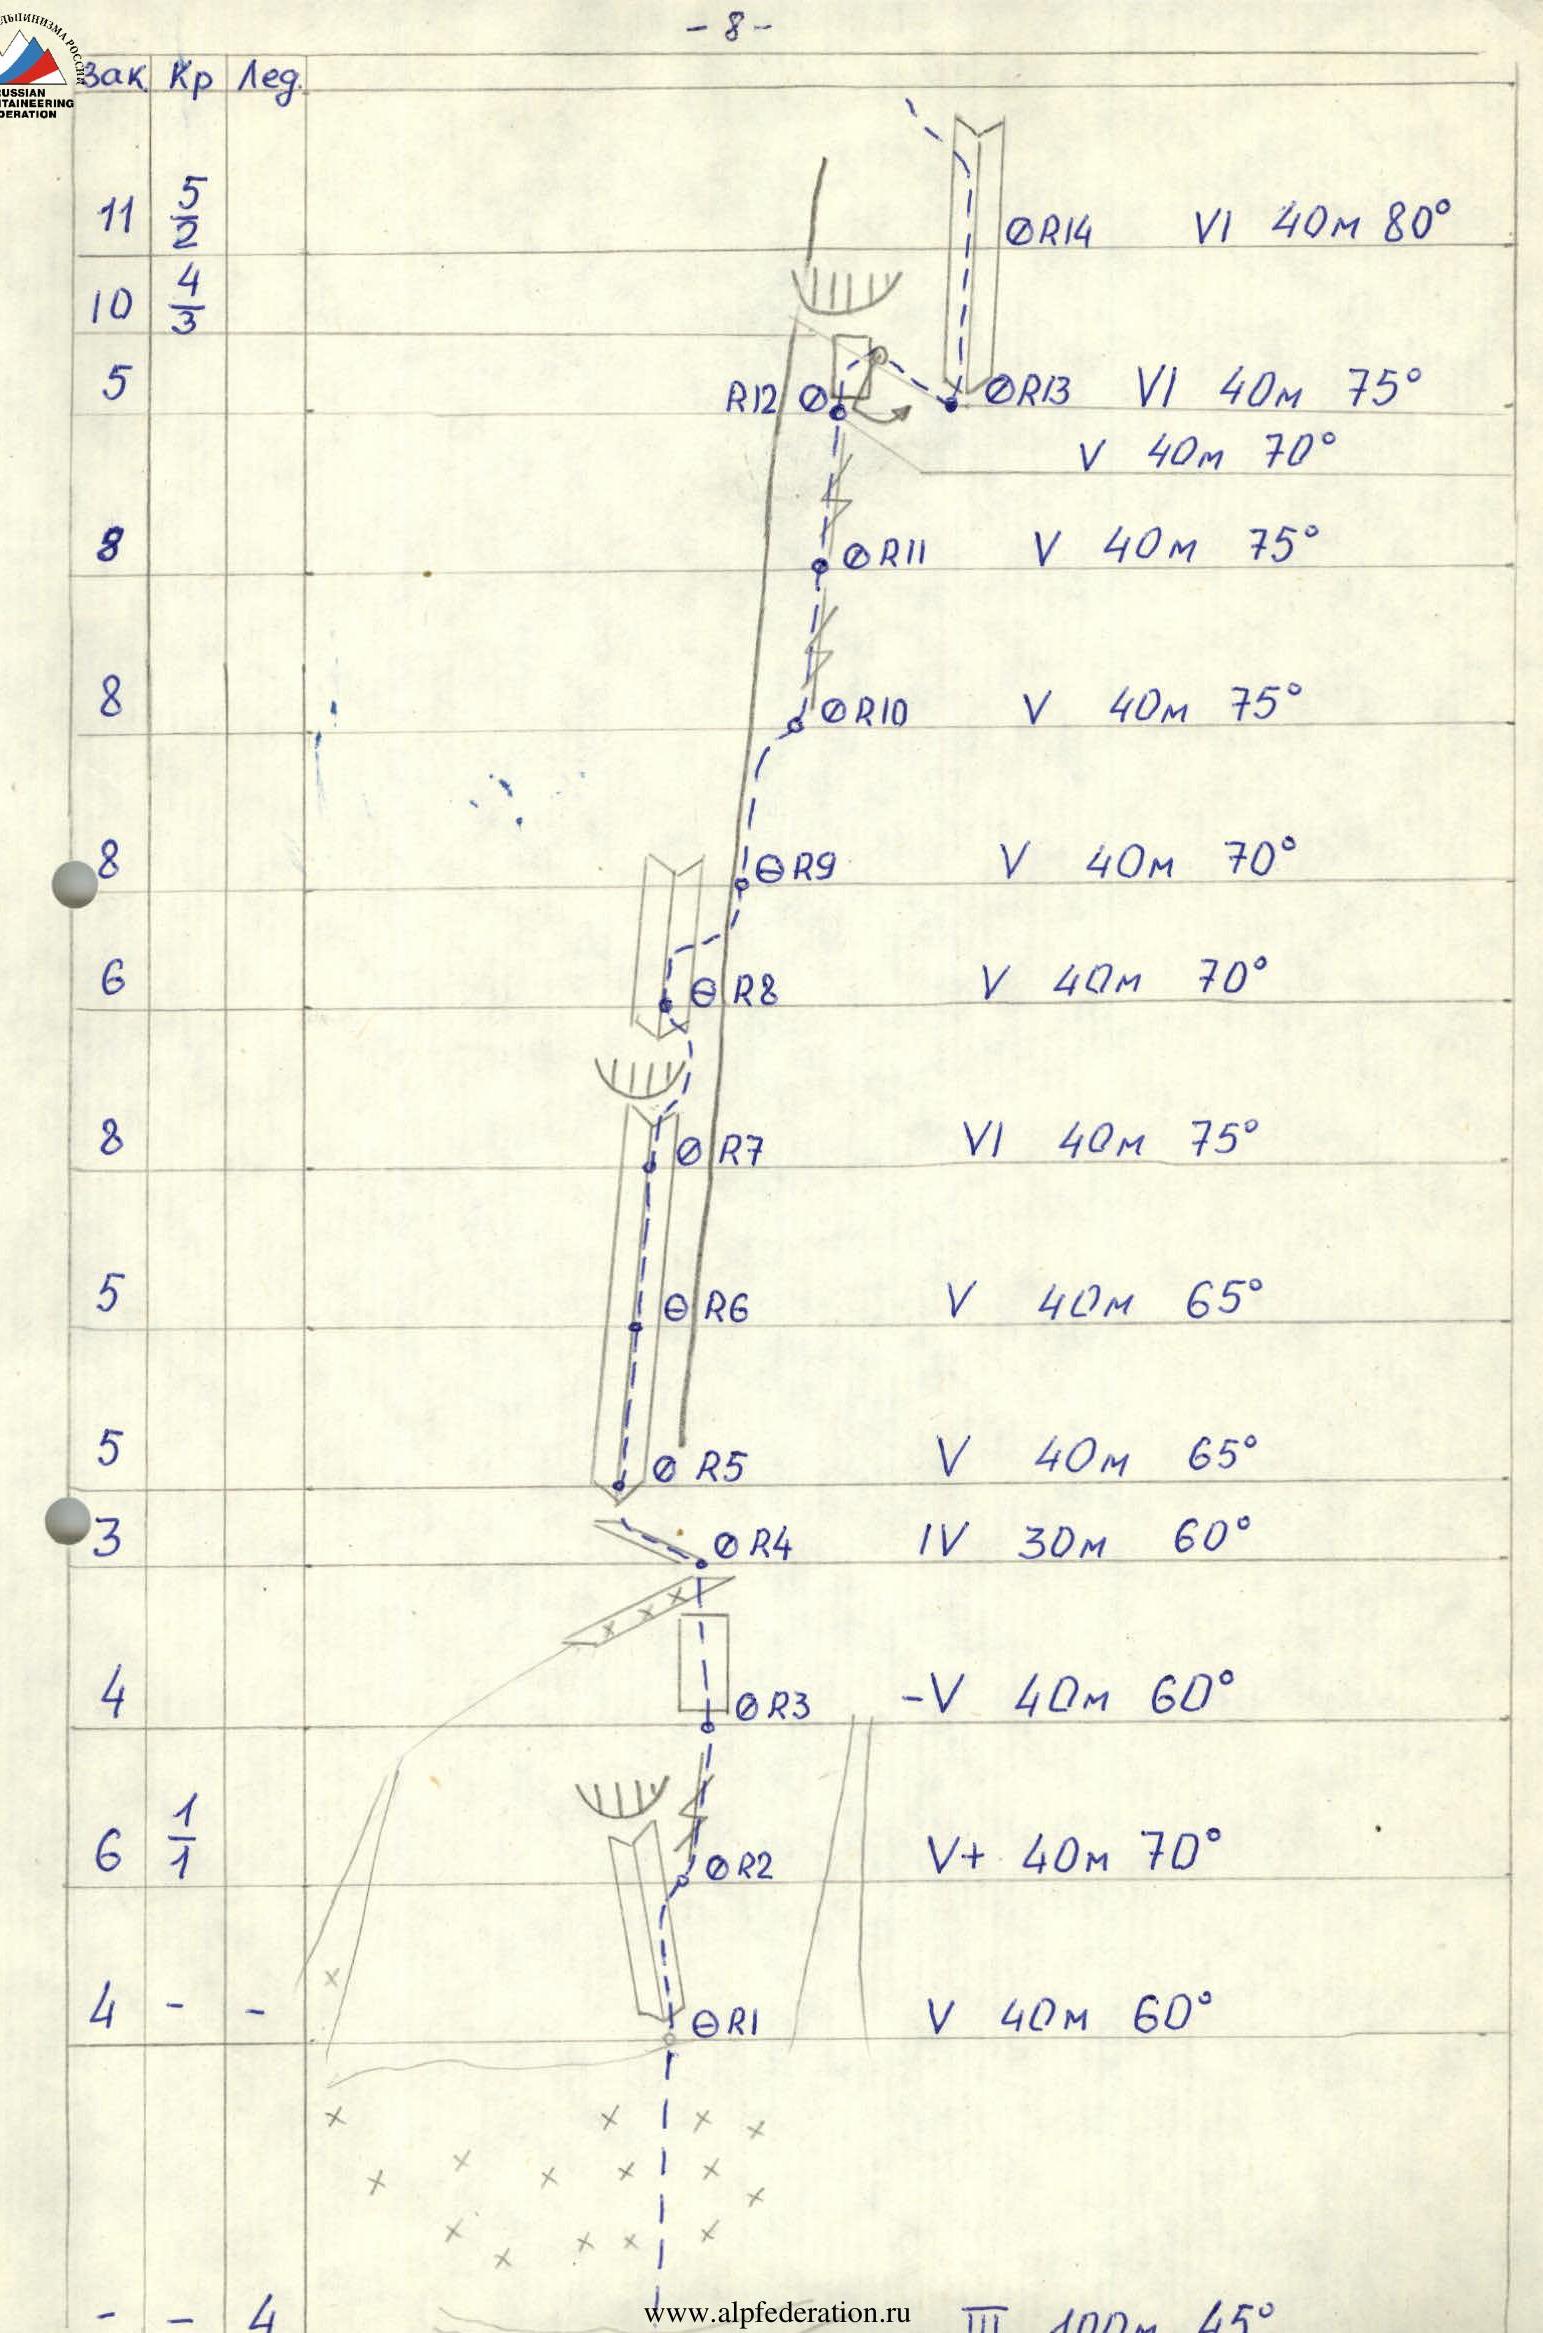 - 8 -
ЛЬПИНИЗМА РОССИИ
RUSSIAN
NTAINEERING
DERATION
Зак Кр Лед.
11 5/2 ØR14 VI 40м 80°
10 4/3
5 R12 Ø ØR13 VI 40м 75°
V 40м 70°
8 ØR11 V 40м 75°
8 ØR10 V 40м 75°
8 ΘR9 V 40м 70°
6 Θ R8 V 40м 70°
8 Ø R7 VI 40м 75°
5 Θ R6 V 40м 65°
5 Ø R5 V 40м 65°
3 Ø R4 IV 30м 60°
4 Ø R3 -V 40м 60°
6 1/1 ØR2 V+ 40м 70°
4 - - ΘR1 V 40м 60°
- - 4 III 100м 45°
www.alpfederation.ru